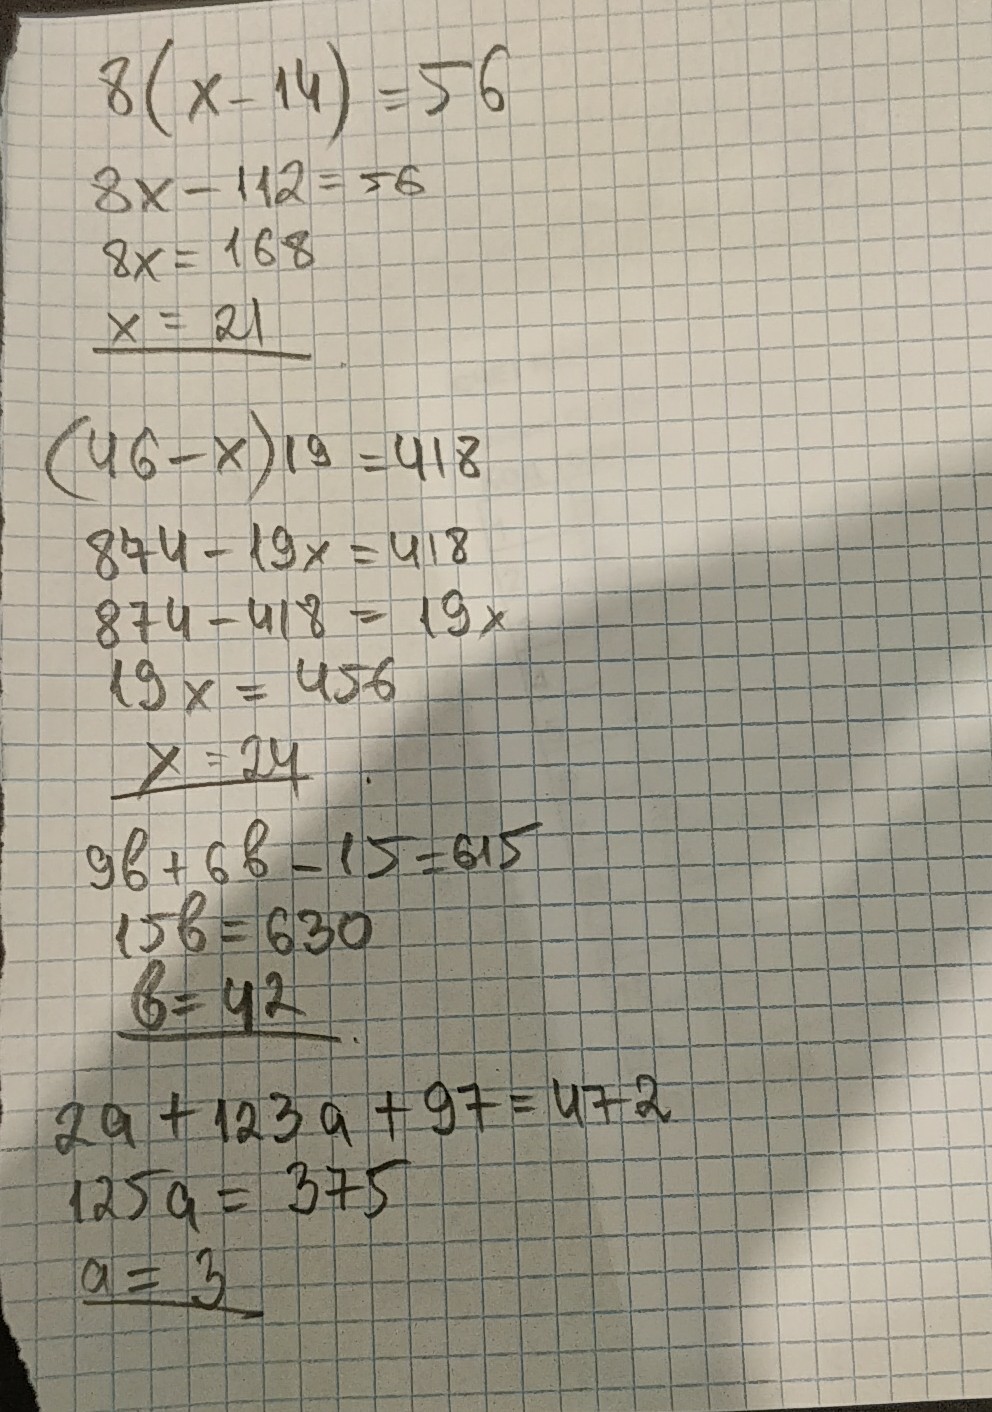 8(x-14)=56
8x-112=56
8x=168
x=21
(46-x)19=418
874-19x=418
874-418=19x
19x=456
x=24
9b+6b-15=615
15b=630
b=42
2a+123a+97=472
125a=375
a=3